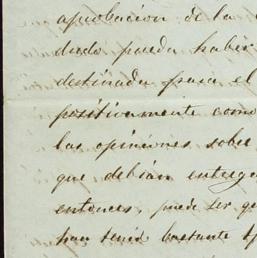 aprobacion de la
dudo pueda haber
destinada para el
positivamente como
las opiniones sobre
que debian entreg
entonces, puede ser q
han tenid bastante